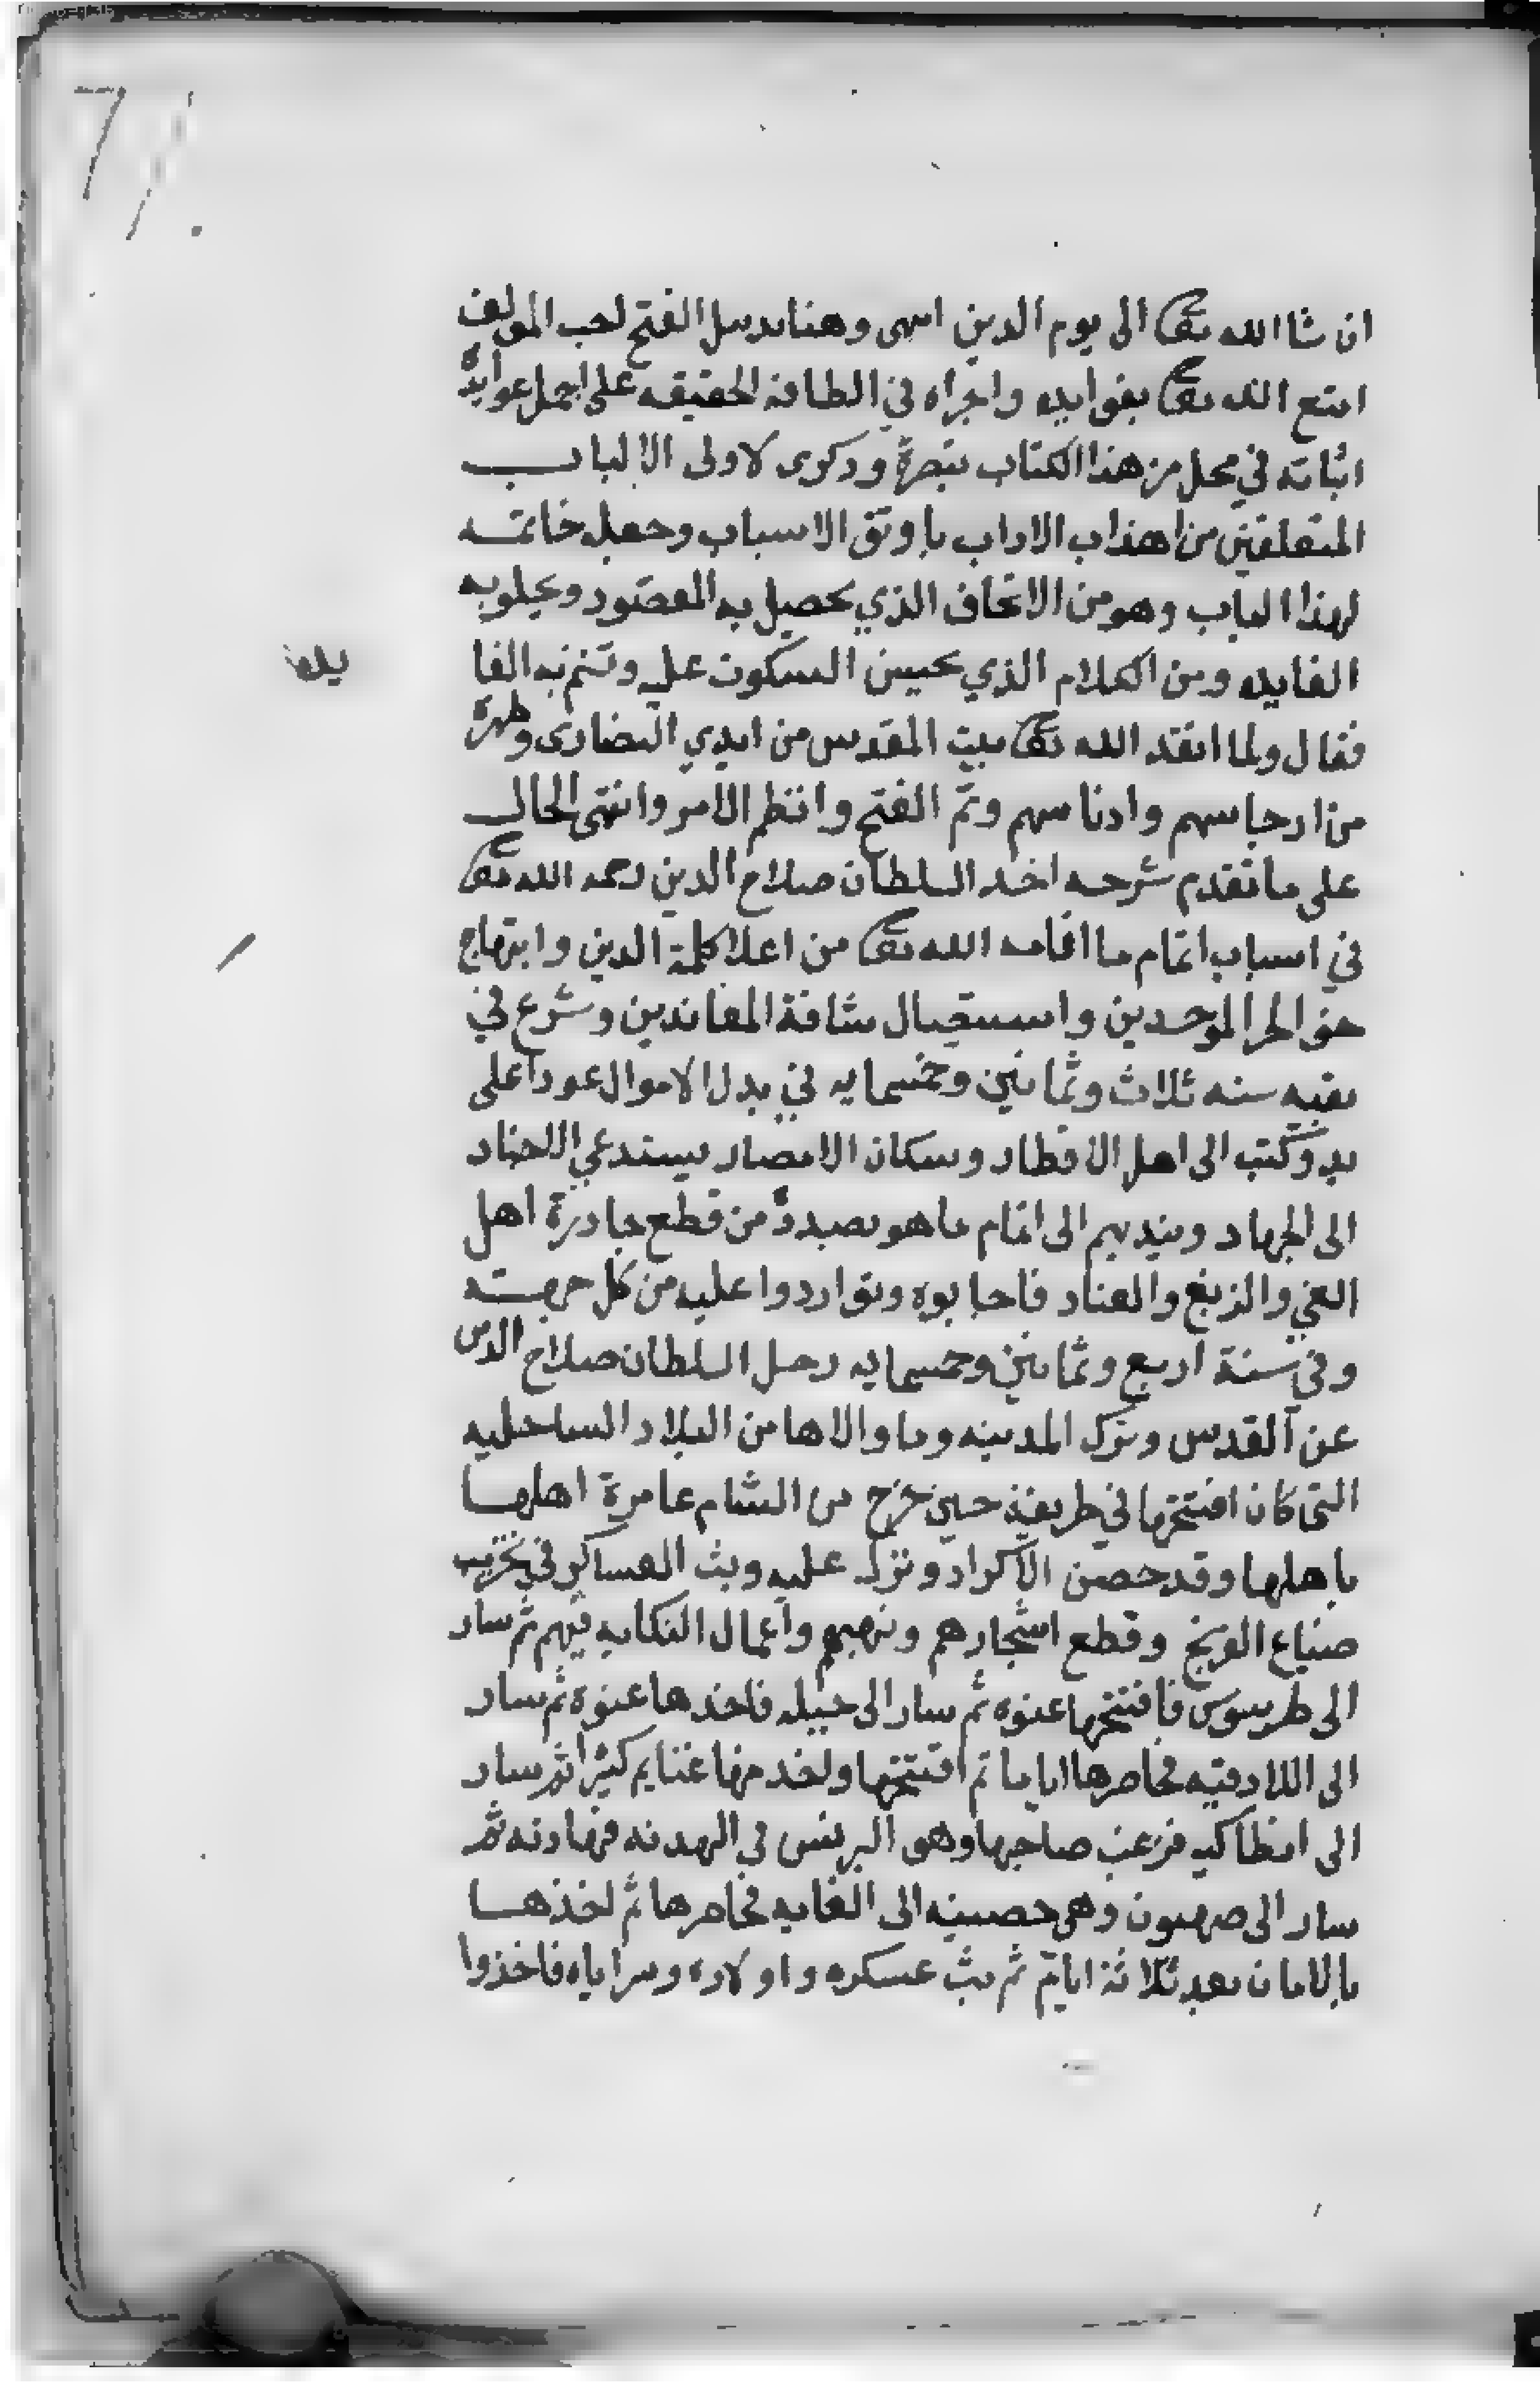 71
ان شا الله تعالى الى يوم الدين انتهى وهنا تدييل الفتح احب المولف
امتع الله تعالى بفوايده واجراه في الطافه الحقيقه على اجمل عوايده
اثباته في محل من هذا الكتاب تبصرة وذكرى لاولى الالباب
المتعلقين من اهداب الاداب باوثق الاسباب وجعله خاتمه
لهذا الباب وهو من الاتحاف الذي يحصل به المقصود ويحلو به
الفايده ومن الكلام الذي يحسن السكوت عليه وتتم به الفا
يده
فقال ولما انقذ الله تعالى بيت المقدس من ايدي النصارى وطهره
من ارجاسهم وادناسهم وتم الفتح وانتظم الامر وانتهى الحال
على ما تقدم شرحه اخد السلطان صلاح الدين رحمه الله تعالى
في اسباب اتمام ما اقامه الله تعالى من اعلا كلمة الدين وابتهاج
الموحدين واستيصال شافة المعاندين وشرع في
بقيه سنه ثلاث وثمانين وخمسمايه في بدل الاموال عودا على
بد وكتب الى اهل الاقطار وسكان الامصار يستدعي الاجناد
الى الجهاد ويندبهم الى اتمام ما هو بصدده من قطع جادرة اهل
الغي والزيغ والعناد فاجابوه وتواردوا عليه من كل جهته
وفي سنة اربع وثمانين وخمسمايه رحل السلطان صلاح الدين
عن القدس وترك المدينه وما والاها من البلاد الساحليه
التي كان افتتحها في طريقة حين خرج من الشام عامرة اهلها
باهلها وقد حصن الاكراد ونزل عليه وبث العساكر في تخريب
ضياع الفرنج وقطع اشجارهم ونهبهم واعمال النكايه فيهم ثم سار
الى طرسوس فافتتحها عنوه ثم سار الى جبيله فاخذها عنوه ثم سار
الى اللادقيه فحاصرها اياما ثم افتتحها واخد منها غنايم كثيرا ثم سار
الى انطاكيه فرغب صاحبها وهو البرنس في الهدنه فهادنه ثم
سار الى صهيون وهي حصينه الى الغايه فحاصرها ثم اخذها
بالامان بعد ثلاثة ايام ثم بث عسكره واولاده وسراياه فاخذوا